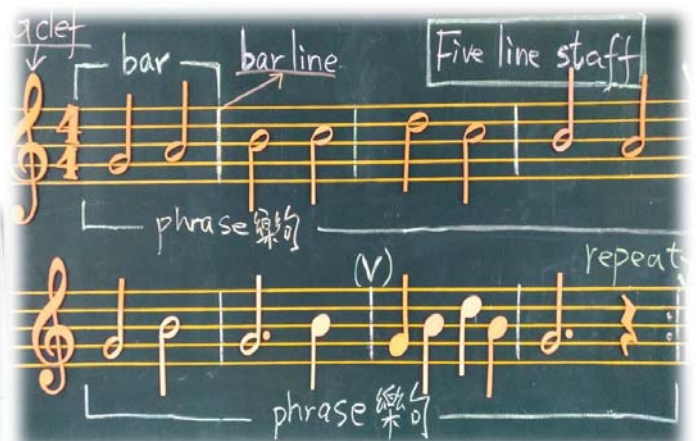 G clef
bar
bar line
Five line staff
4
4
phrase 樂句
(V)
repeat
phrase 樂句